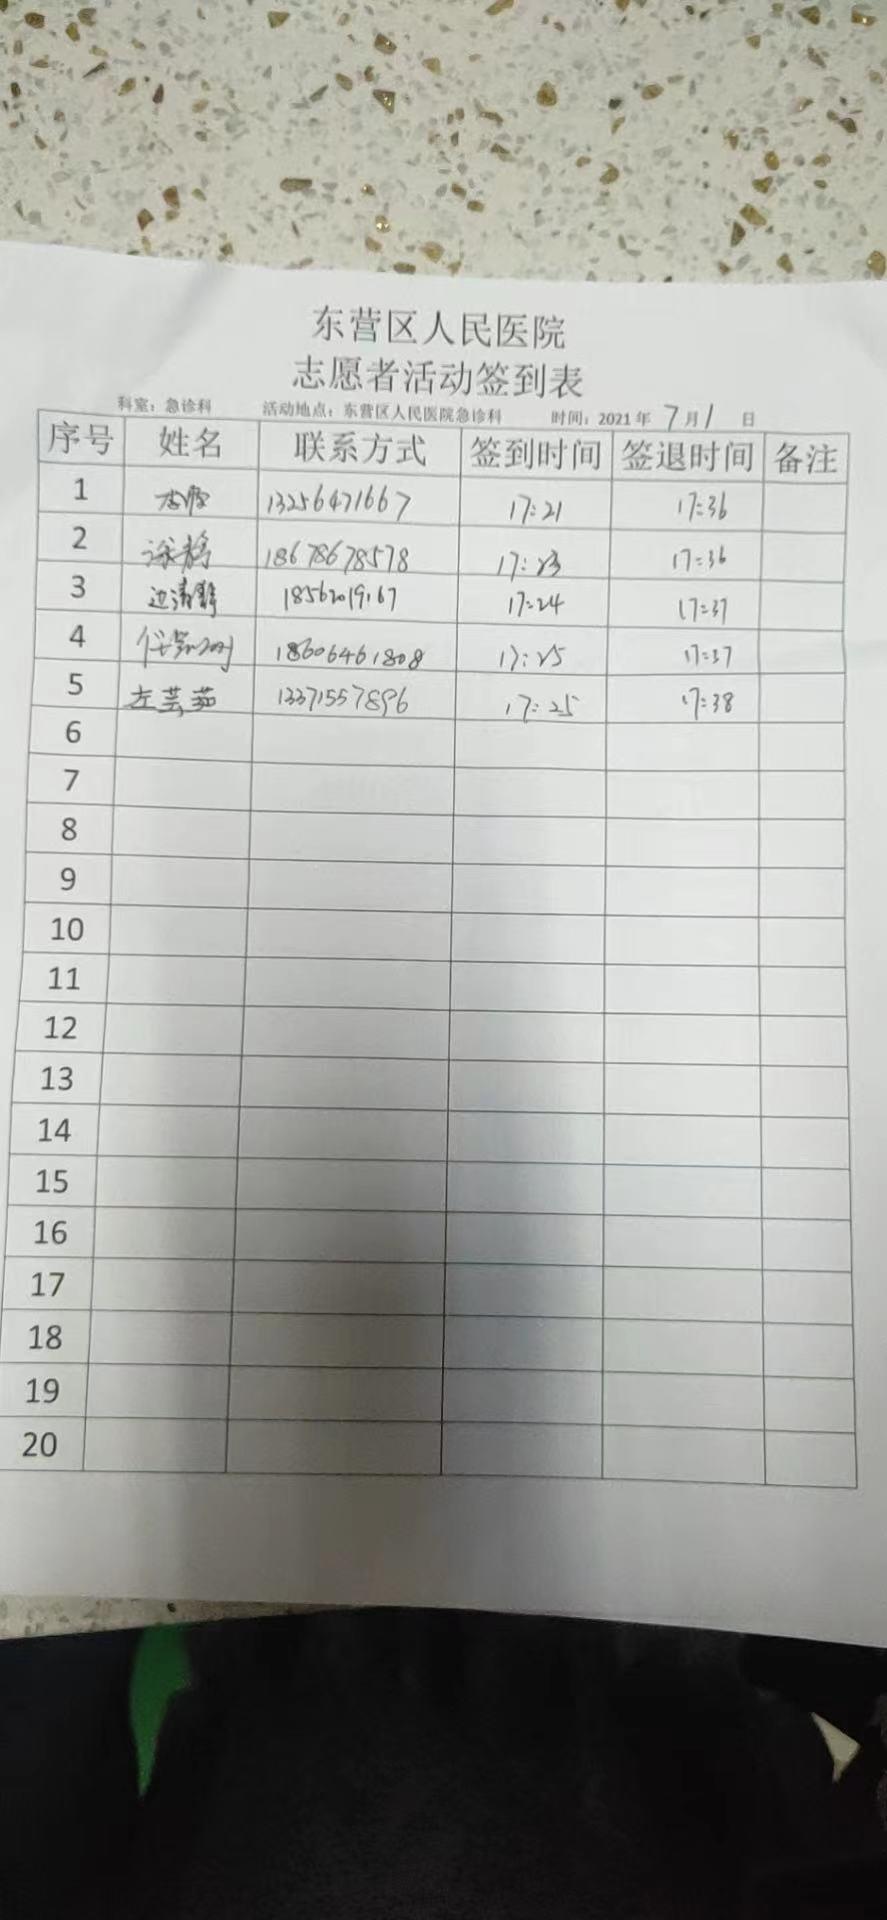 东营区人民医院
志愿者活动签到表
科室：急诊科 活动地点：东营区人民医院急诊科 时间：2021年 7月1 日
序号 姓名 联系方式 签到时间 签退时间 备注
1 13256471667 17:21 17:36
2 18678678578 17:23 17:36
3 边清 17:24 17:37
4 18606461808 17:25 17:37
5 左芸茹 13371557896 17:25 17:38
6
7
8
9
10
11
12
13
14
15
16
17
18
19
20